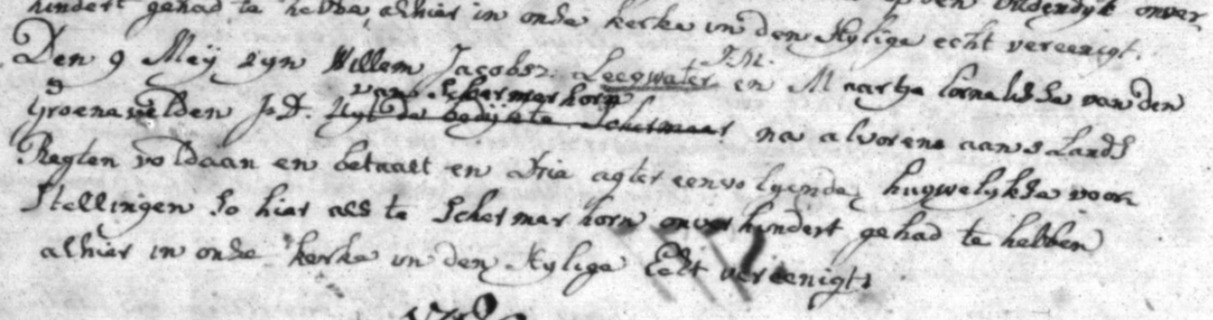 hindert gehad te hebbe, alhier in onse kerke in den Hylige echt vereenigt.
Den 9 Meÿ zyn Willem Jacobsz. Leegwater J.M. en Maartje Cornelisse van den
Groenevelden J.D. van Schermerhorn Uyt de bedijkte Schermeer na alvorens aan s Lands
Regten voldaan en betaalt en drie agter eenvolgende huywelykse voor
Stellingen so hier als te Schermerhorn onverhindert gehad te hebben
alhier in onse kerke in den Hylige Echt vereenigt